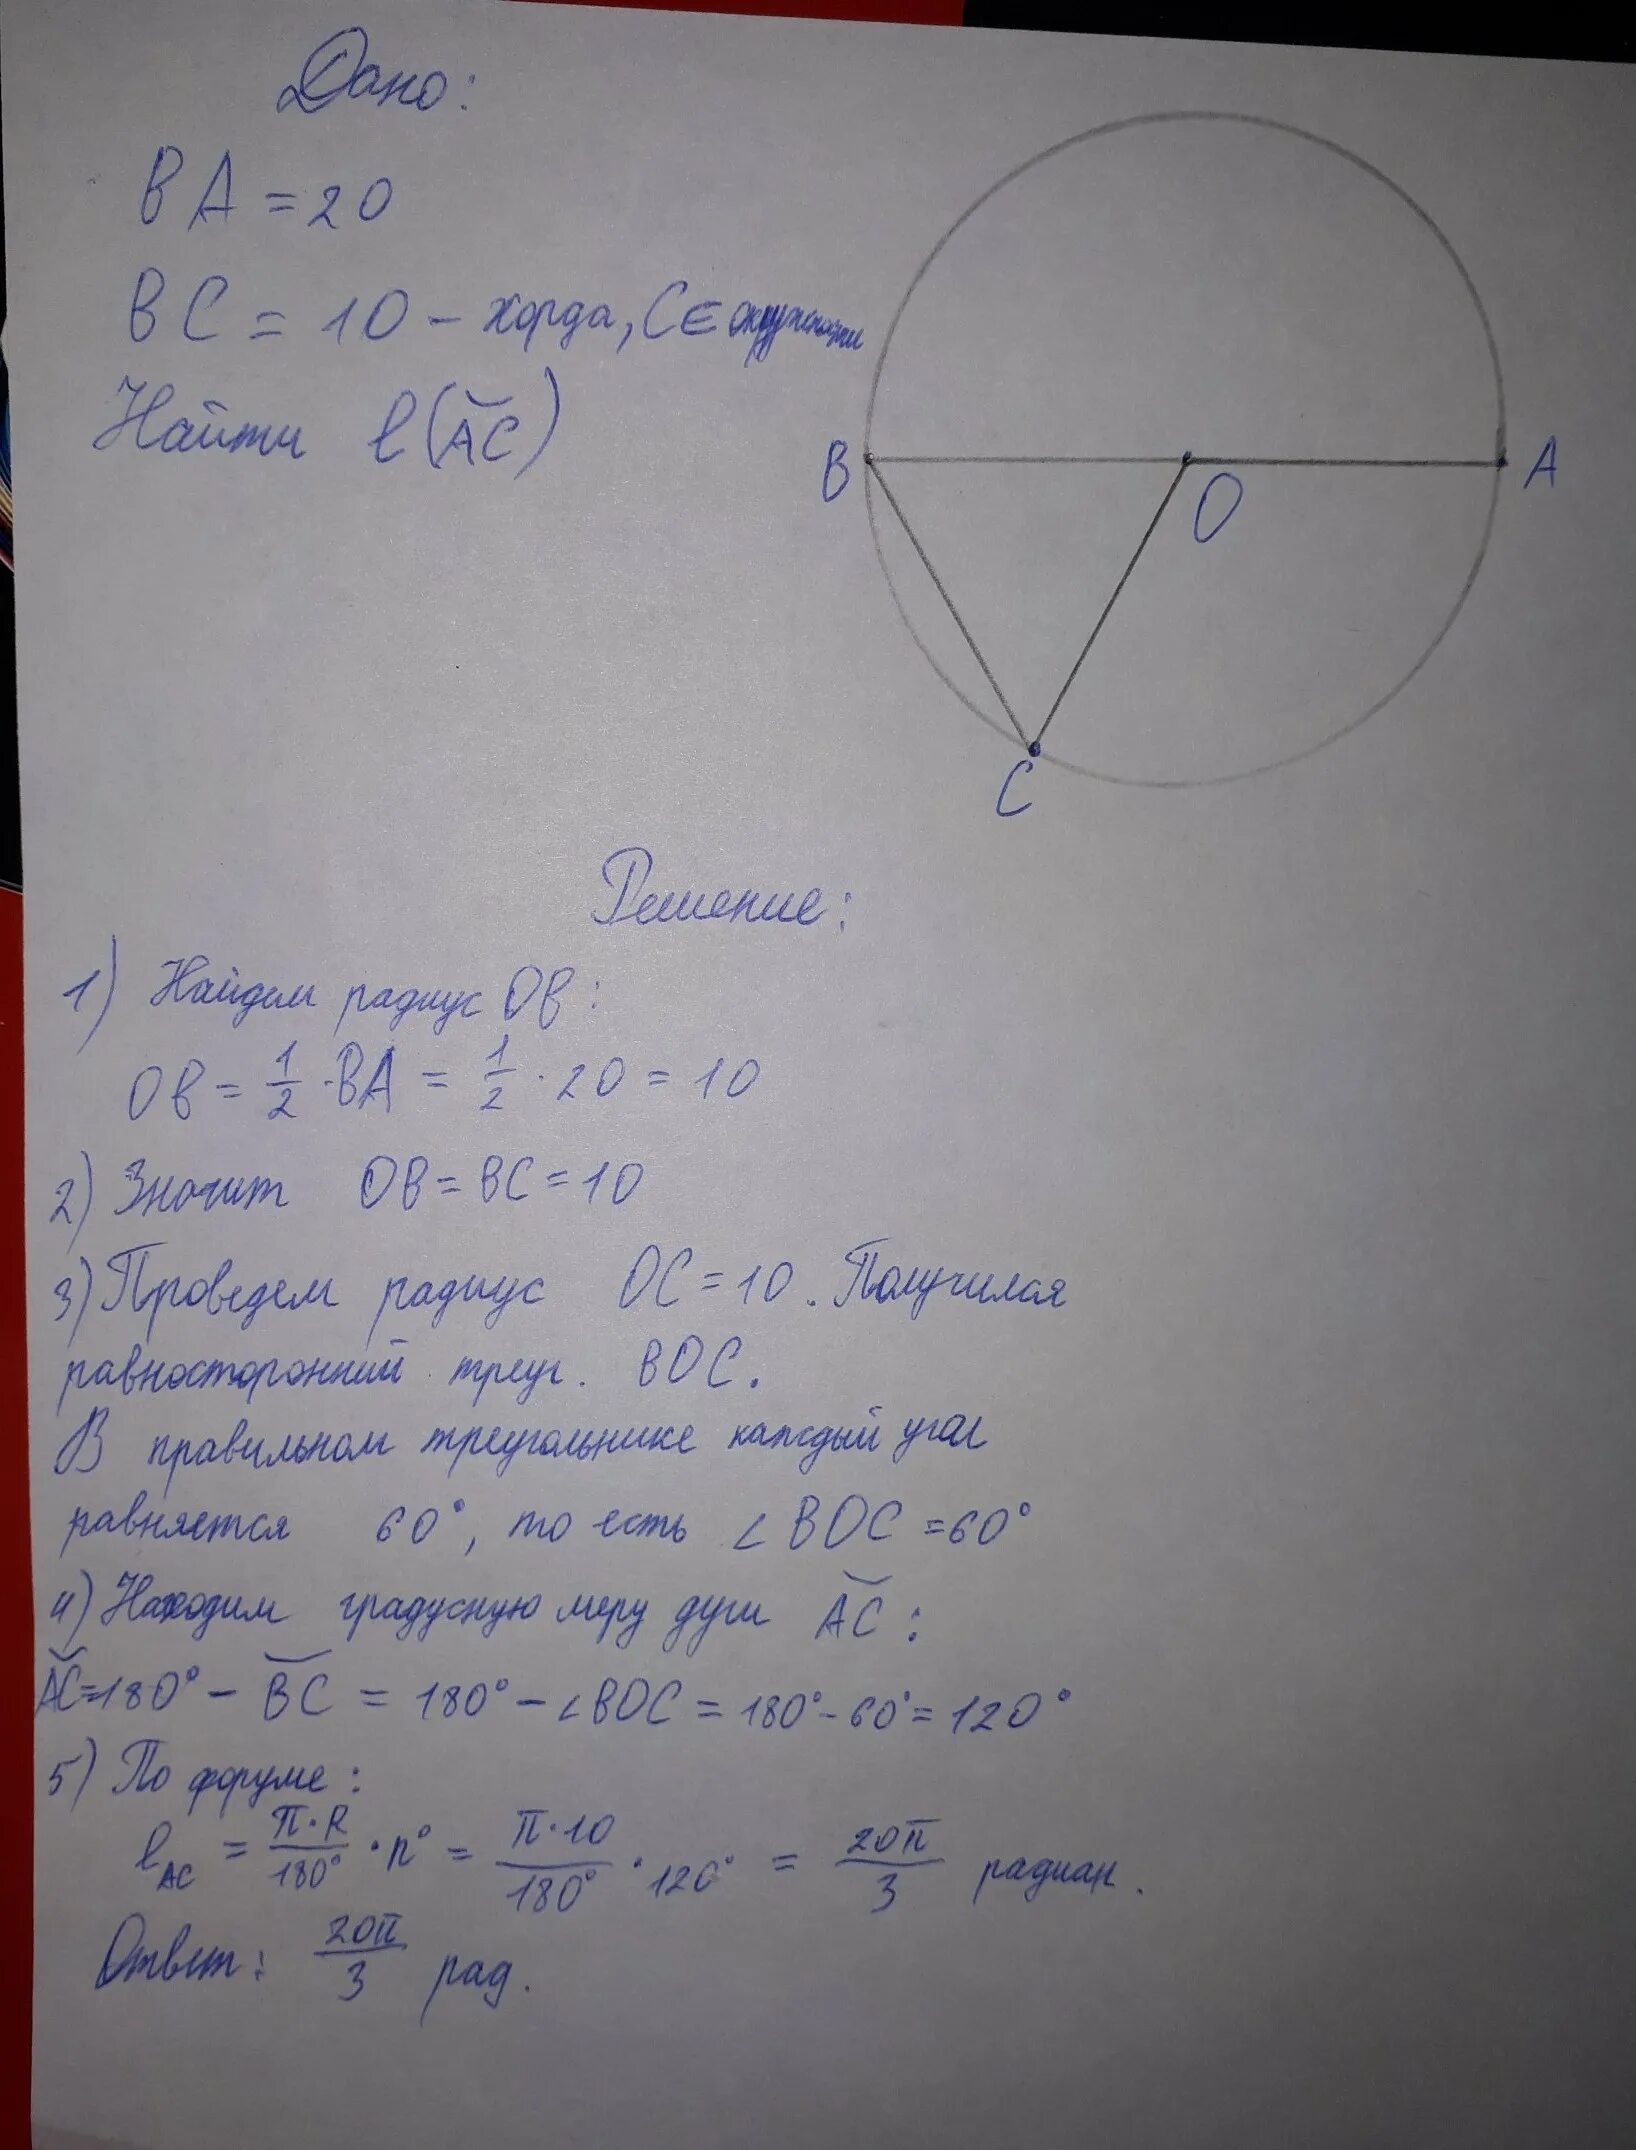 Дано:
BA = 20
BC = 10 - хорда, C ∈ окружности
Найти l(A͝C)
B
O
A
C
Решение:
1) Найдем радиус OB:
OB = 1/2 · BA = 1/2 · 20 = 10
2) Значит OB = BC = 10
3) Проведем радиус OC = 10. Получился
равносторонний треуг. BOC.
В правильном треугольнике каждый угол
равняется 60°, то есть ∠BOC = 60°
4) Находим градусную меру дуги A͝C:
A͝C = 180° - B͝C = 180° - ∠BOC = 180° - 60° = 120°
5) По форуме:
l AC = π·R/180° · n° = π·10/180° · 120° = 20π/3 радиан.
Ответ: 20π/3 рад.